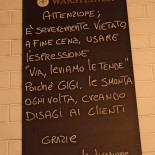 ATTENZIONE;
È SEVERAMENTE VIETATO,
A FINE CENA, USARE
L'ESPRESSIONE
"VIA, LEVIAMO LE TENDE"
POICHÉ GIGI, LE SMONTA
OGNI VOLTA, CREANDO
DISAGI AI CLIENTI
GRAZIE